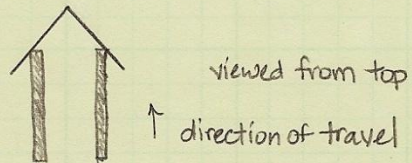 viewed from top
direction of travel